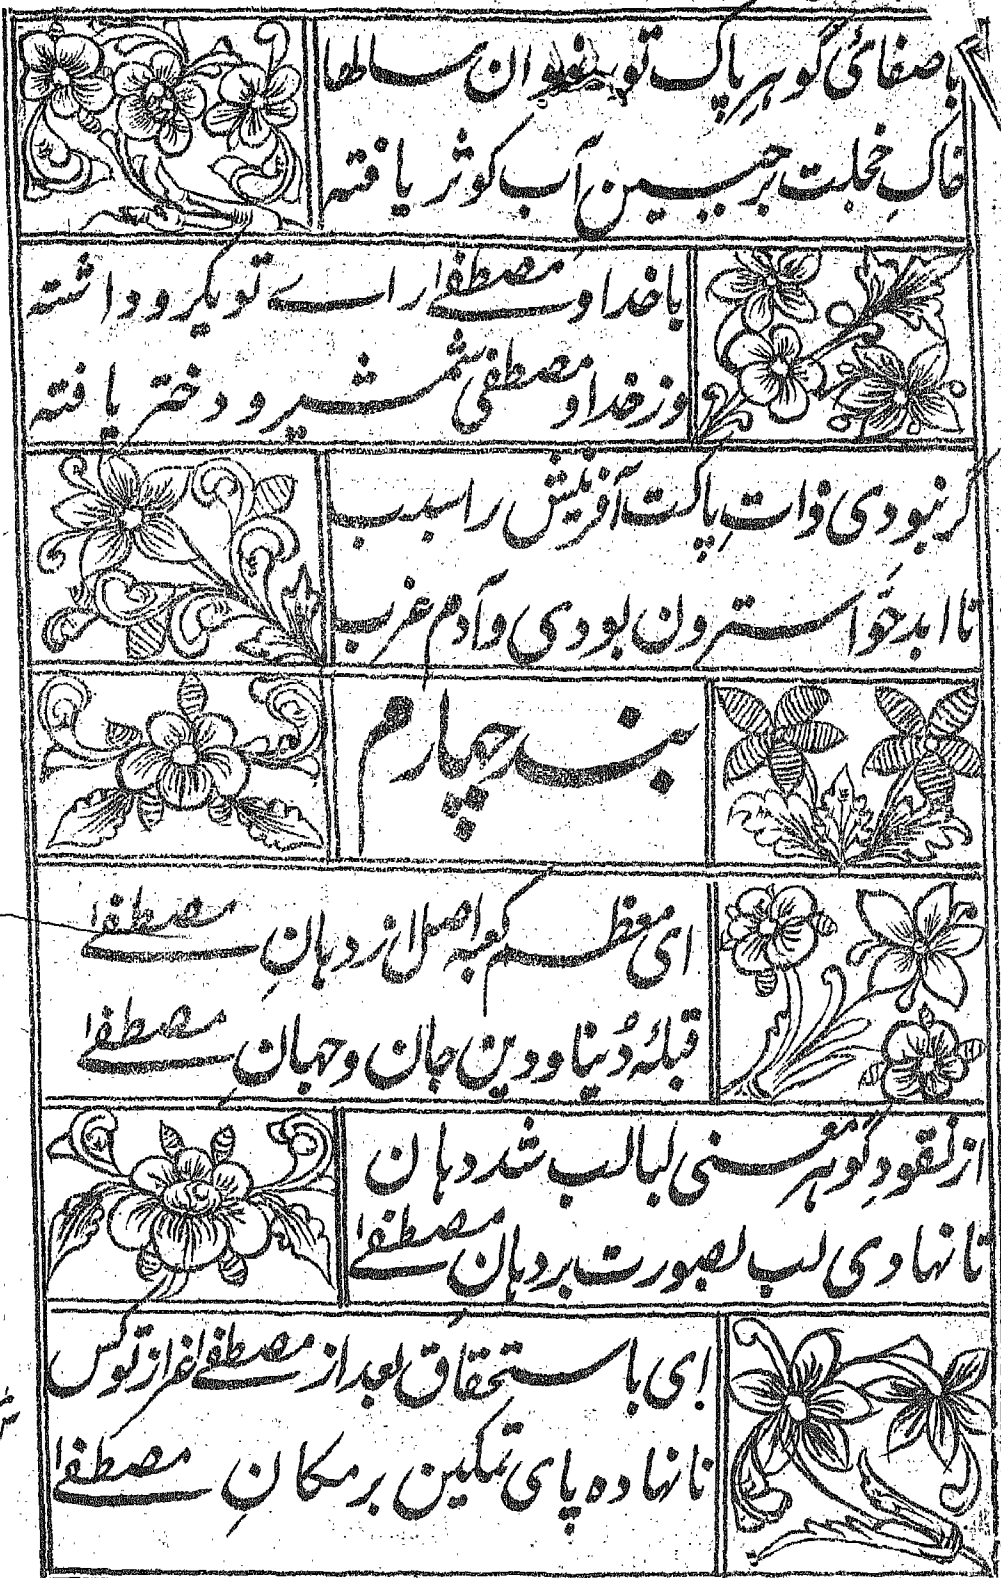 با صفائی گوہرِ پاک تو ان سالها
خاکِ خجلت بر جبین آب کوثر یافتہ
با خدا و مصطفےٰ را اے تو یکرو داشتہ
وز خدا و مصطفی شمشیر و دختر یافتہ
گر نبودی ذاتِ پاکت آفرینش را سبب
تا ابد حوّا سترون بودی و آدم عزب
بند چہارم
ای معظم کعبہ اصل از دہانِ مصطفےٰ
قبلہٴ دُنیا و دین جان و جہانِ مصطفےٰ
از نقودِ گوہرِ معنی لبالب شد دہان
تا نہادی لب بصورت بر دہانِ مصطفےٰ
اِی با ستحقاق بعد از مصطفےٰ غیر از تو کس
نا نہادہ پای تمکین بر مکانِ مصطفےٰ